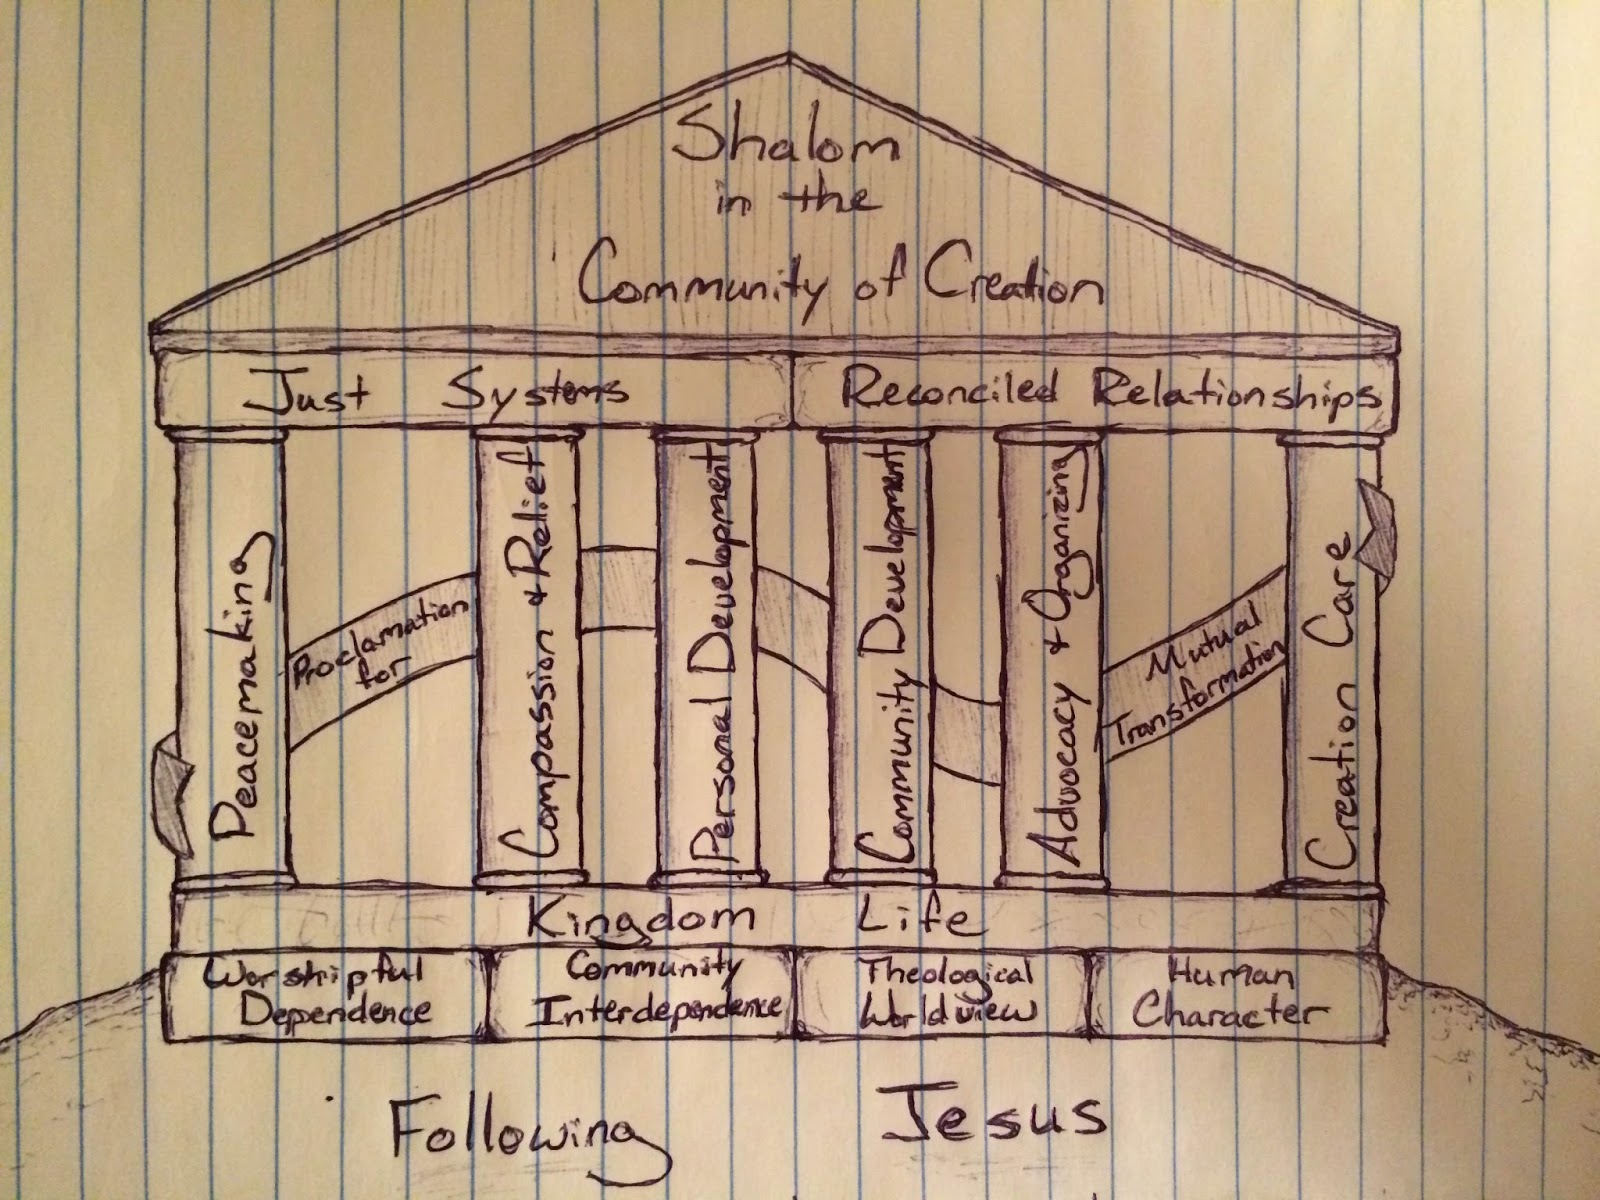 Shalom
in the
Community of Creation
Just Systems
Reconciled Relationships
Peacemaking
Proclamation
for
Compassion & Relief
Personal Development
Community Development
Advocacy & Organizing
Mutual
Transformation
Creation Care
Kingdom Life
Worshipful
Dependence
Community
Interdependence
Theological
Worldview
Human
Character
Following Jesus